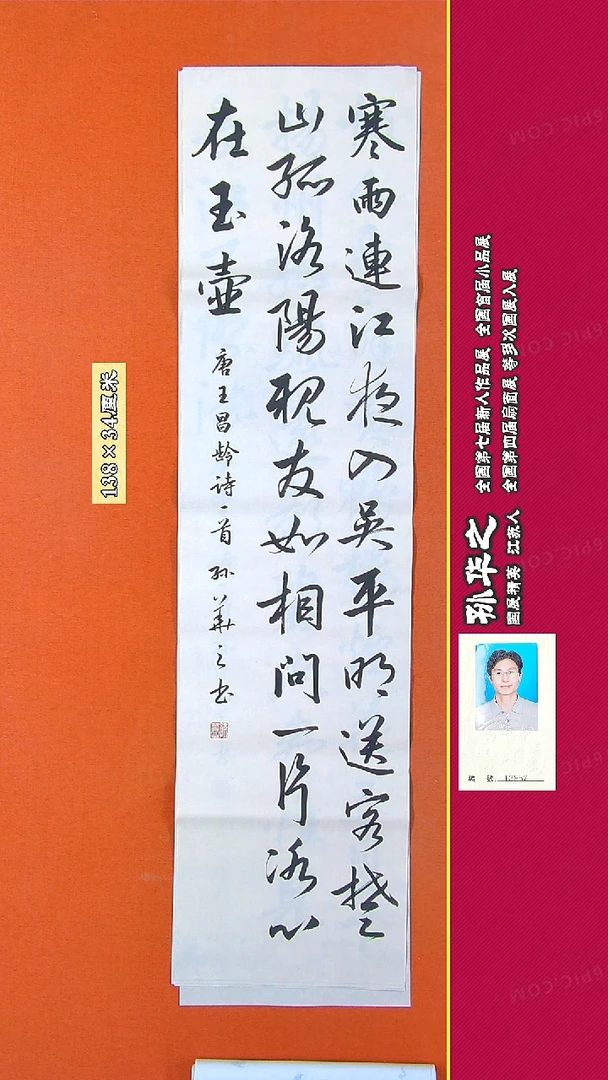 寒雨連江夜入吴平明送客楚
山孤洛陽親友如相問一片冰心
在玉壺
唐王昌龄诗一首 孙華之书
138×34厘米
孙华之
国展精英 江苏人
全国第七届新人作品展 全国首届小品展
全国第四届扇面展 等多次国展入展
编 号
6PIC.COM